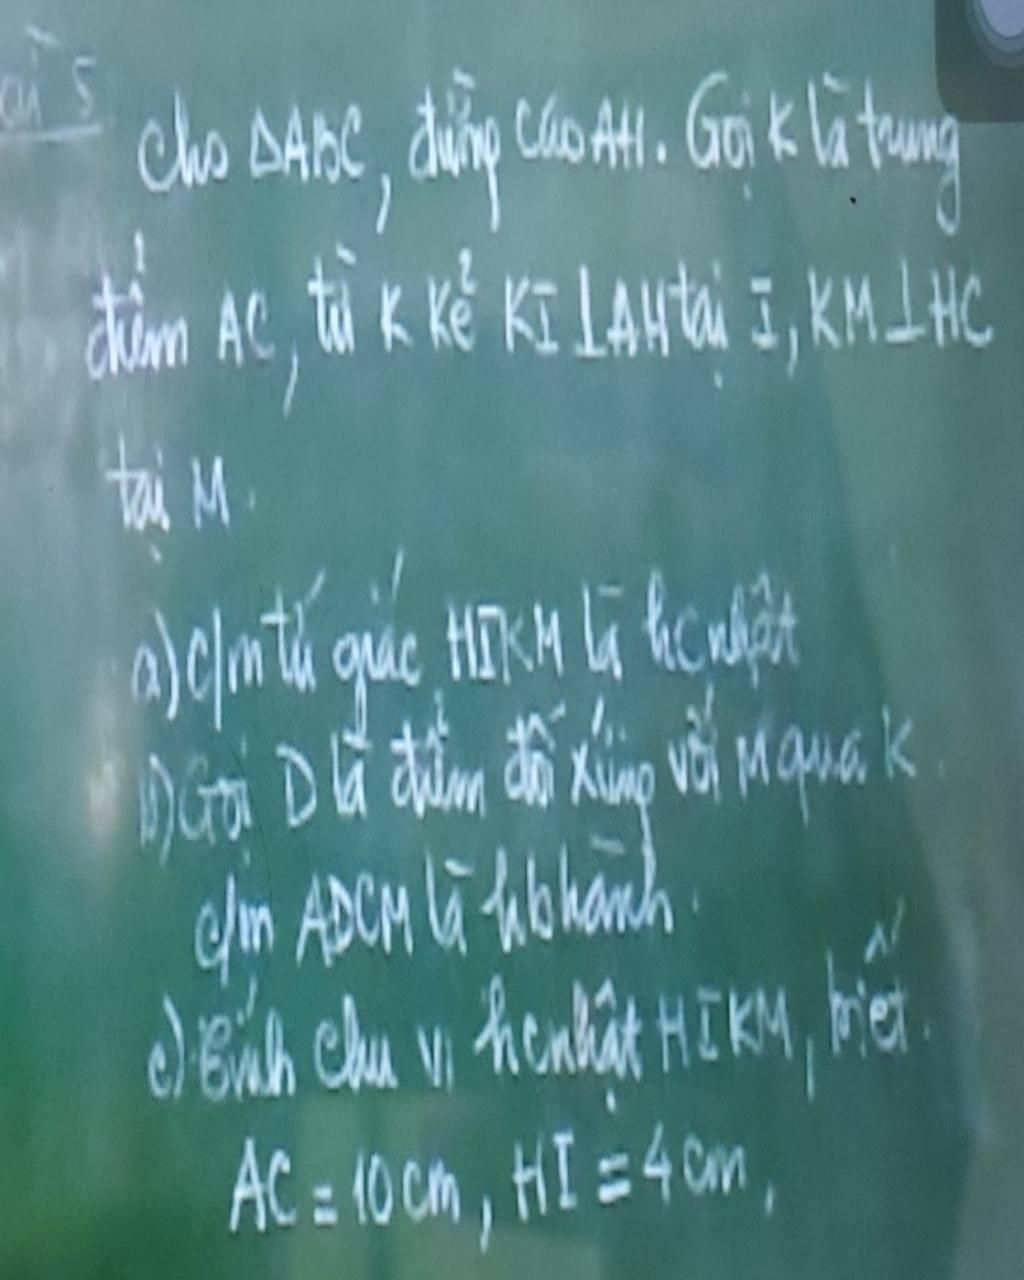 Bài 5
Cho ΔABC, đường cao AH. Gọi K là trung
điểm AC, từ K kẻ KI ⊥ AH tại I, KM ⊥ HC
tại M.
a) c/m tứ giác HIKM là hcnhật
b) Gọi D là điểm đối xứng với M qua K.
c/m ADCM là hbhành.
c) Tính chu vi hcnhật HIKM, biết.
AC = 10 cm, HI = 4 cm,